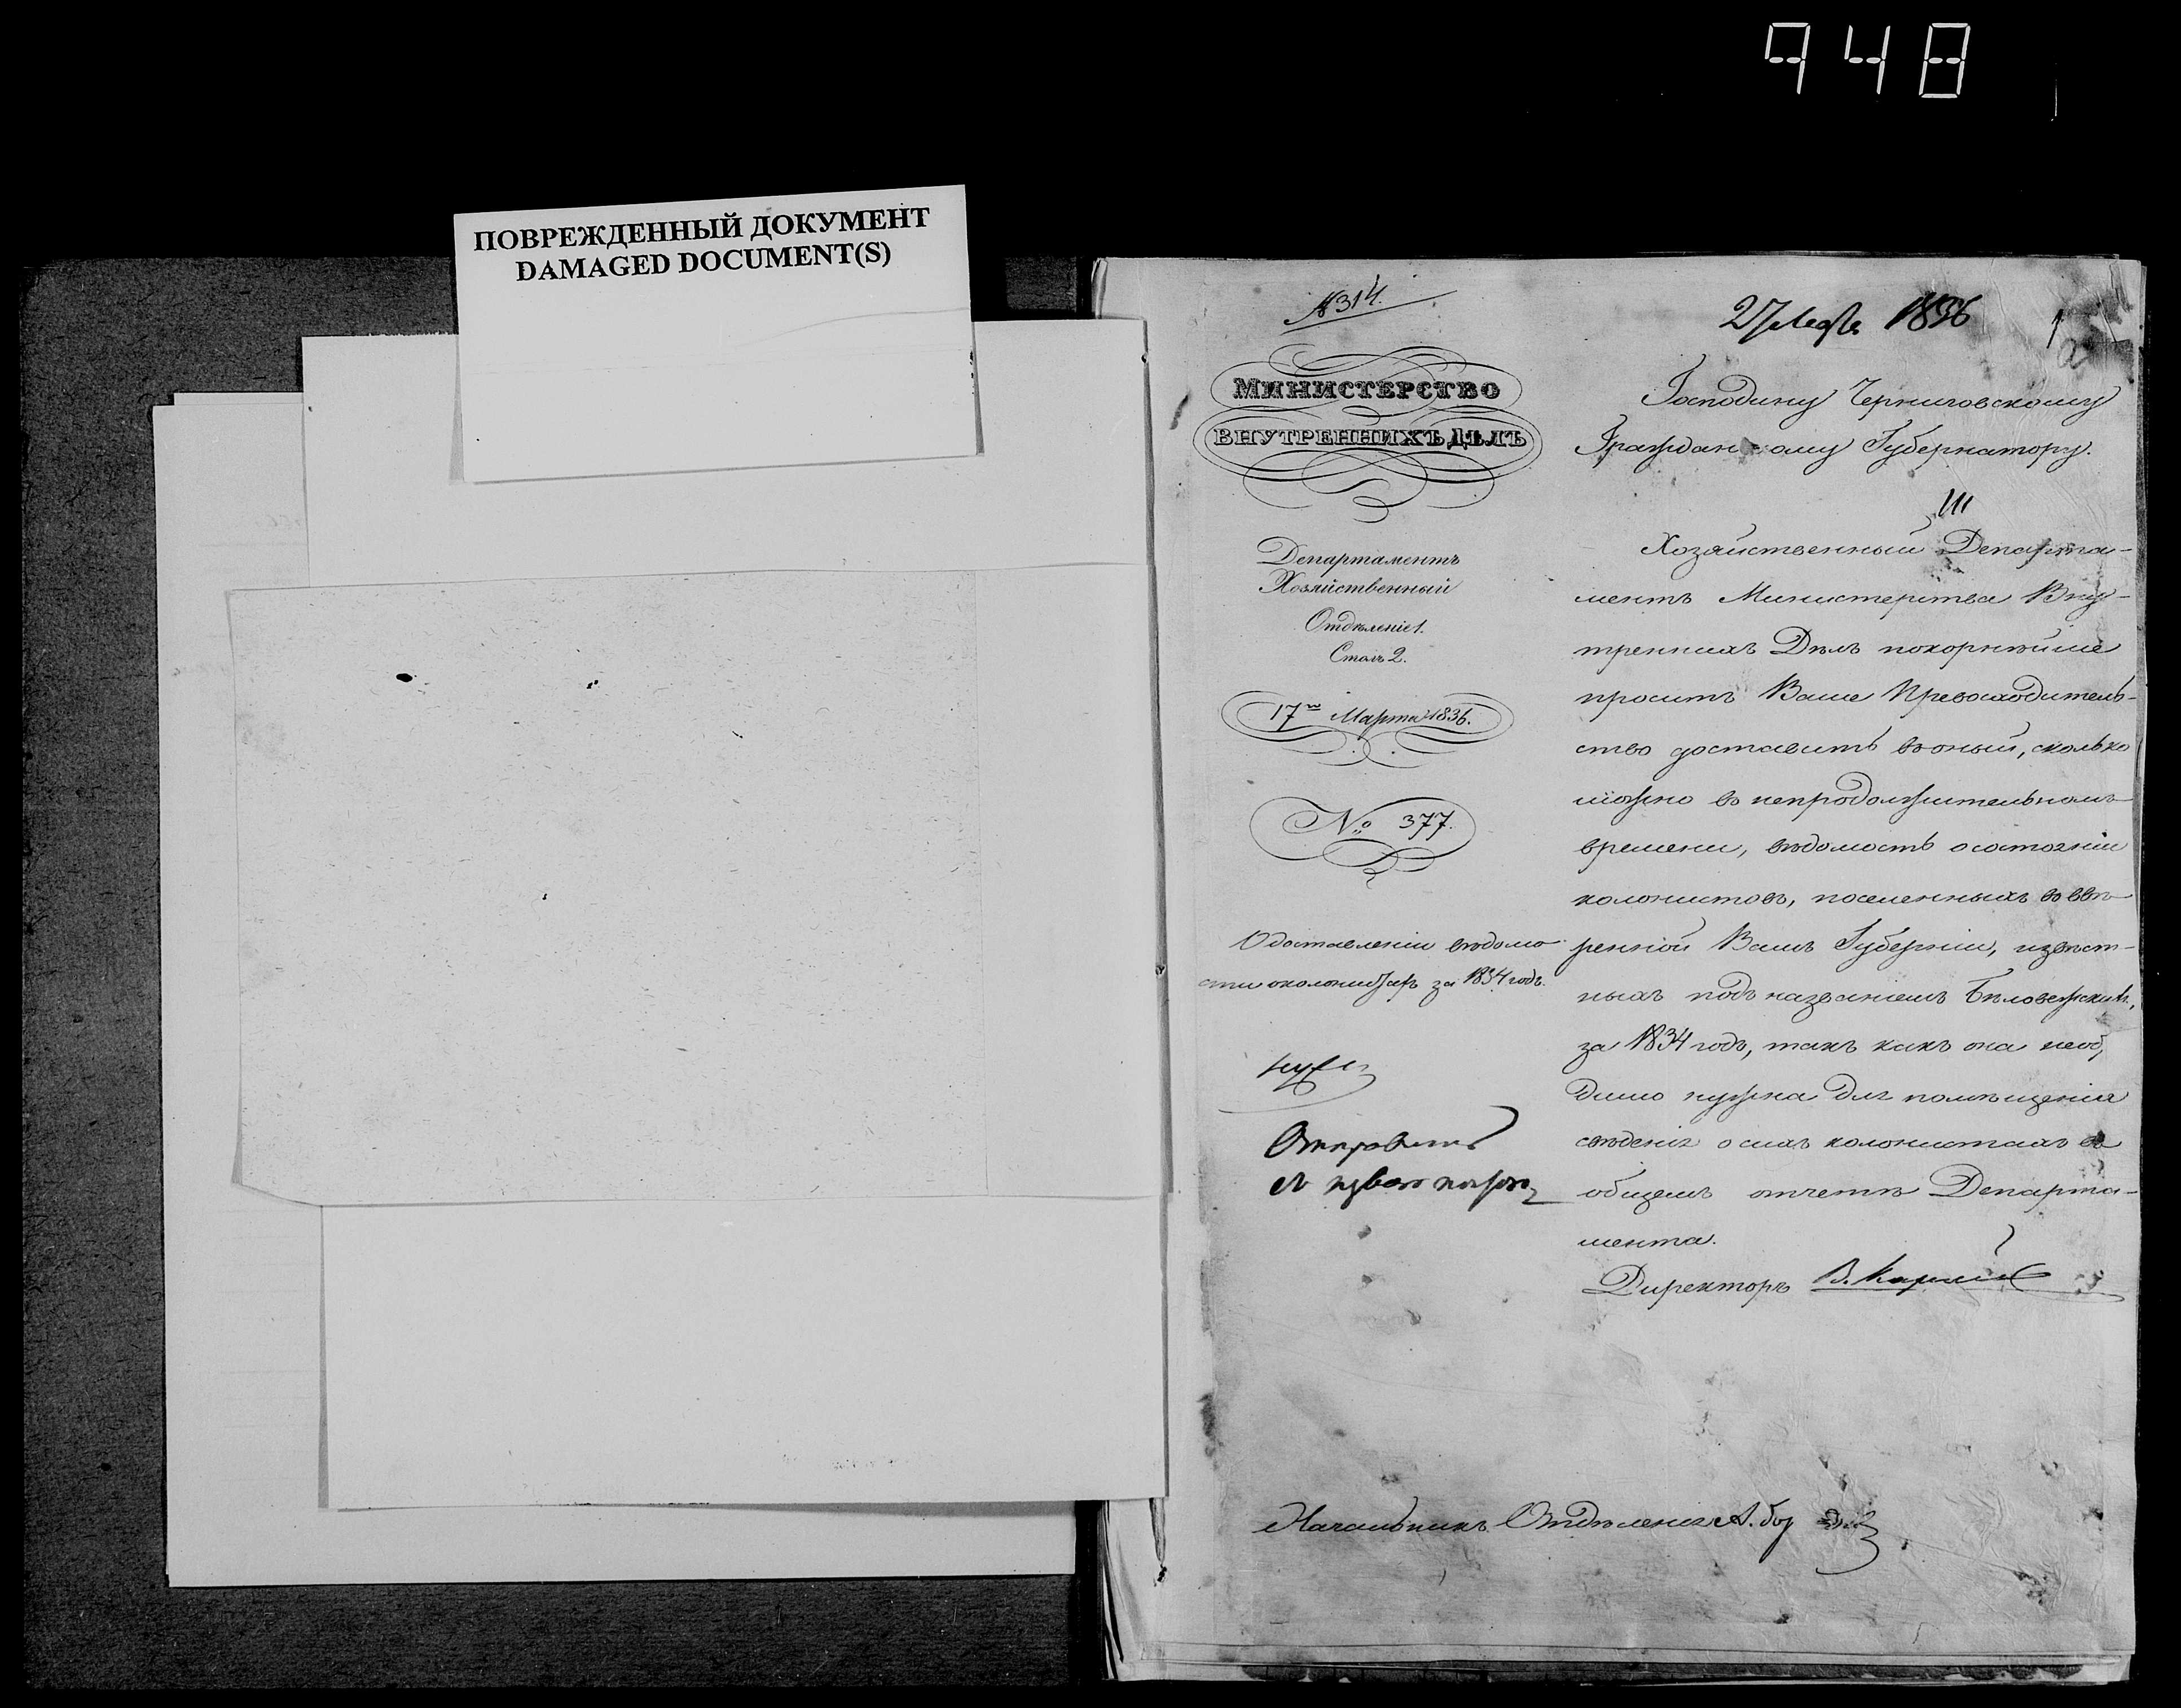 948
ПОВРЕЖДЕННЫЙ ДОКУМЕНТ
DAMAGED DOCUMENT(S)
№ 314.
27 Марта 1836
МИНИСТЕРСТВО
ВНУТРЕННИХЪ ДѢЛЪ
Департаментъ
Хозяйственный
Отдѣленіе 1.
Столъ 2.
17го Марта 1836.
№ 377.
О доставленіи вѣдомо
сти о колонистахъ за 1834 годъ.
Господину Черниговскому
Гражданскому Губернатору.
III
Хозяйственный Департа-
ментъ Министерства Вну-
треннихъ Дѣлъ покорнѣйше
проситъ Ваше Превосходитель-
ство доставить въ оный, сколько
можно въ непродолжительномъ
времени, вѣдомость о состояніи
колонистовъ, поселенныхъ во ввѣ-
ренной Вамъ Губерніи, извѣст-
ныхъ подъ названіемъ Бѣловежскихъ,
за 1834 годъ, такъ какъ она необ
димо нужна для помѣщенія
свѣденія о сихъ колонистахъ въ
общемъ отчетѣ Департа-
мента.
Директоръ
Начальникъ Отдѣленія А.